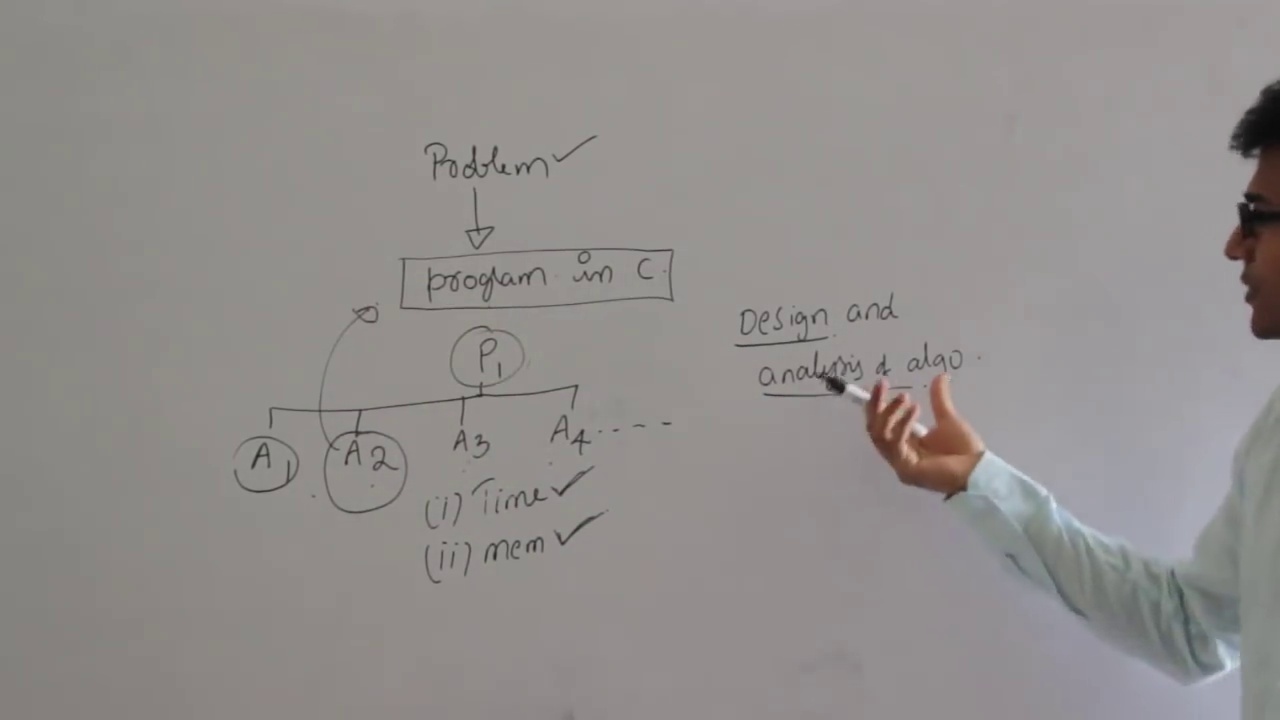 Problem ✓
program in C.
P1
A1 A2 A3 A4 - - - -
(i) Time ✓
(ii) mem ✓
Design and
analysis of algo